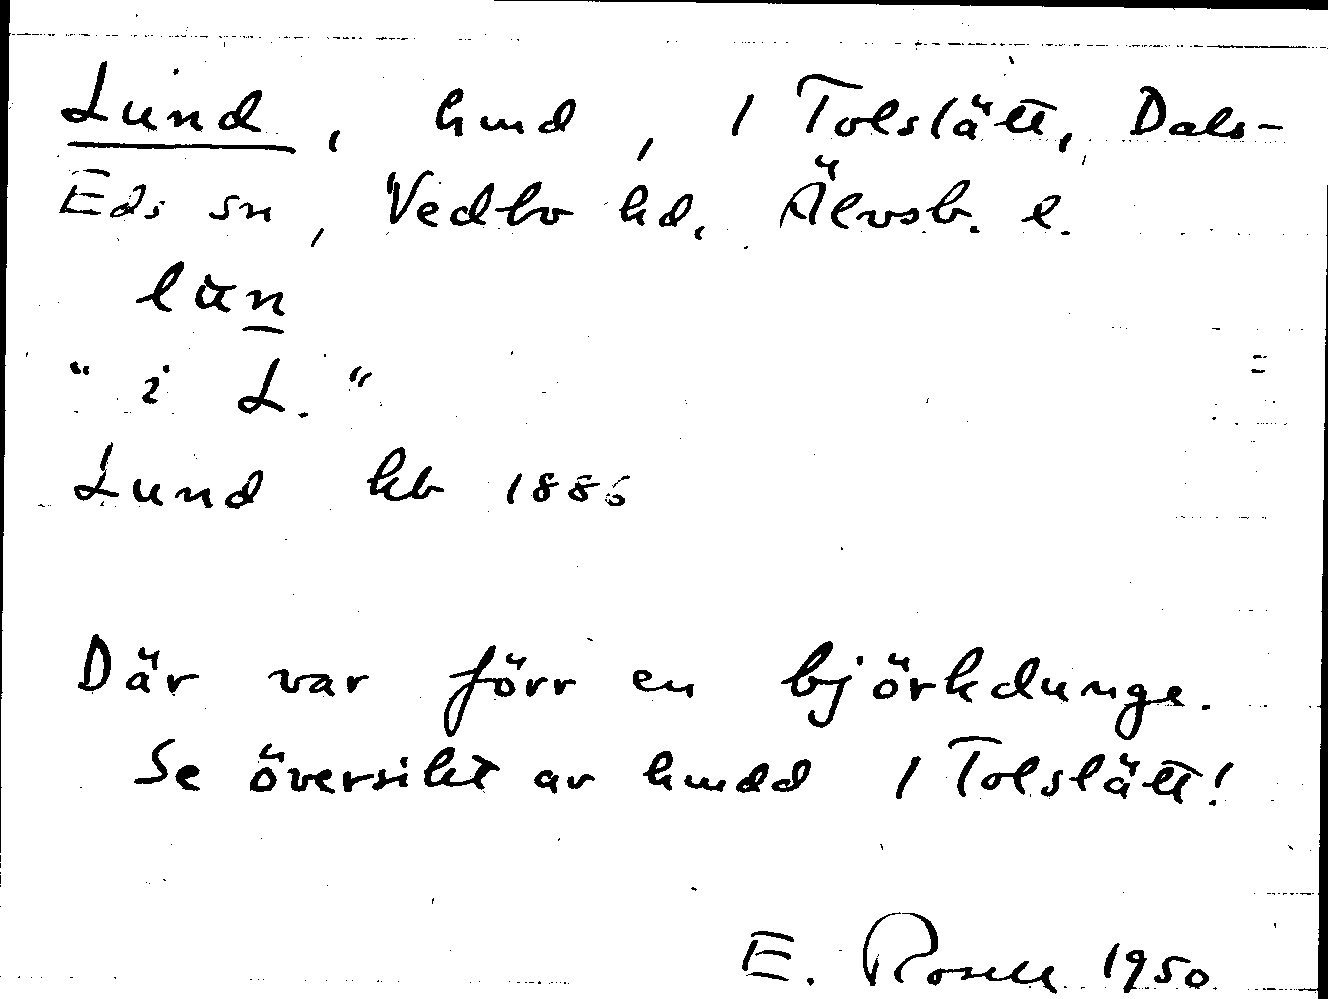 Lund, hmd, 1 Tolslätt, Dals-
Eds sn, Vedbo hd. Älvsb. l.
lun
"i L."
Lund kb 1886
Där var förr en björkdunge.
Se översikt av hmdd 1 Tolslätt!
E. Rosell 1950